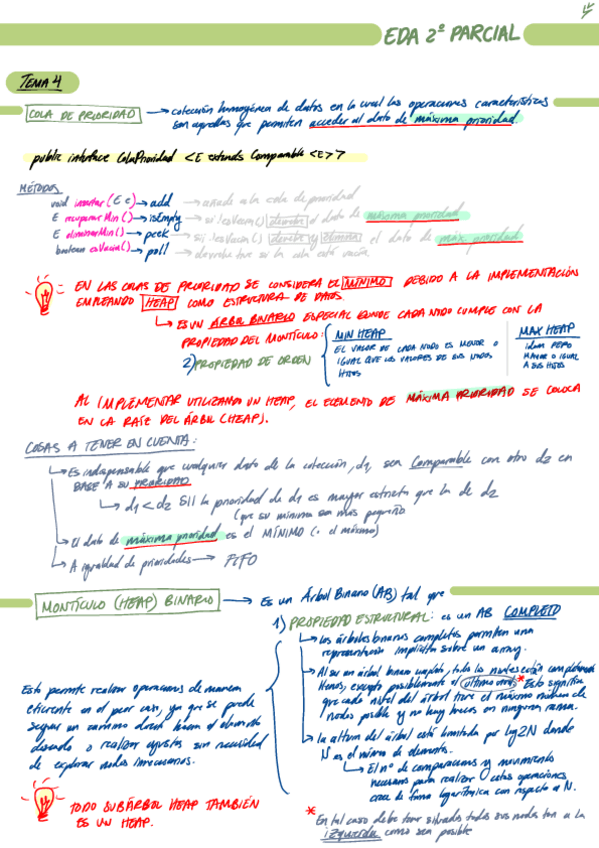 EDA 2º PARCIAL
TEMA 4
COLA DE PRIORIDAD → colección homogénea de datos en la cual las operaciones características
son aquellas que permiten acceder al dato de máxima prioridad.
public interface ColaPrioridad <E extends Comparable <E>>
MÉTODOS
void insertar (E e) → add → añade a la cola de prioridad
E recuperarMin () → isEmpty → sii !esVacia() devuelve el dato de máxima prioridad
E eliminarMin () → peek → sii !esVacia() devuelve y elimina el dato de máx. prioridad
boolean esVacia() → poll → devuelve true si la cola está vacía
EN LAS COLAS DE PRIORIDAD SE CONSIDERA EL MÍNIMO DEBIDO A LA IMPLEMENTACIÓN
EMPLEANDO HEAP COMO ESTRUCTURA DE DATOS.
↳ ES UN ÁRBOL BINARIO ESPECIAL DONDE CADA NODO CUMPLE CON LA
PROPIEDAD DEL MONTÍCULO:
2) PROPIEDAD DE ORDEN
MIN HEAP
EL VALOR DE CADA NODO ES MENOR O
IGUAL QUE LOS VALORES DE SUS NODOS
HIJOS
MAX HEAP
IDEM PERO
MAYOR O IGUAL
A SUS HIJOS
AL IMPLEMENTAR UTILIZANDO UN HEAP, EL ELEMENTO DE MÁXIMA PRIORIDAD SE COLOCA
EN LA RAÍZ DEL ÁRBOL (HEAP).
COSAS A TENER EN CUENTA:
↳ Es indispensable que cualquier dato de la colección, d1, sea Comparable con otro d2 en
BASE A SU PRIORIDAD
↳ d1 < d2 SII la prioridad de d1 es mayor estricta que la de d2
(que su mínimo sea más pequeño
↳ El dato de máxima prioridad es el MÍNIMO (o el máximo)
↳ A igualdad de prioridades → FIFO
MONTÍCULO (HEAP) BINARIO → Es un Árbol Binario (AB) tal que
1) PROPIEDAD ESTRUCTURAL: es un AB COMPLETO
↳ Los árboles binarios completos permiten una
representación implícita sobre un array.
↳ Al ser un árbol binario completo, todos los niveles están completamente
llenos, excepto posiblemente el último nivel.* Esto significa
que cada nivel del árbol tiene el máximo número de
nodos posible y no hay huecos en ninguna rama.
↳ la altura del árbol está limitada por log2N donde
N es el número de elementos.
↳ El nº de comparaciones y movimientos
necesario para realizar estas operaciones
crece de forma logarítmica con respecto a N.
Esto permite realizar operaciones de manera
eficiente en el peor caso, ya que se puede
seguir un camino directo hacia el elemento
deseado o realizar ajustes sin necesidad
de explorar nodos innecesarios.
TODO SUBÁRBOL HEAP TAMBIÉN
ES UN HEAP.
* En tal caso debe tener situados todos sus nodos tan a la
izquierda como sea posible